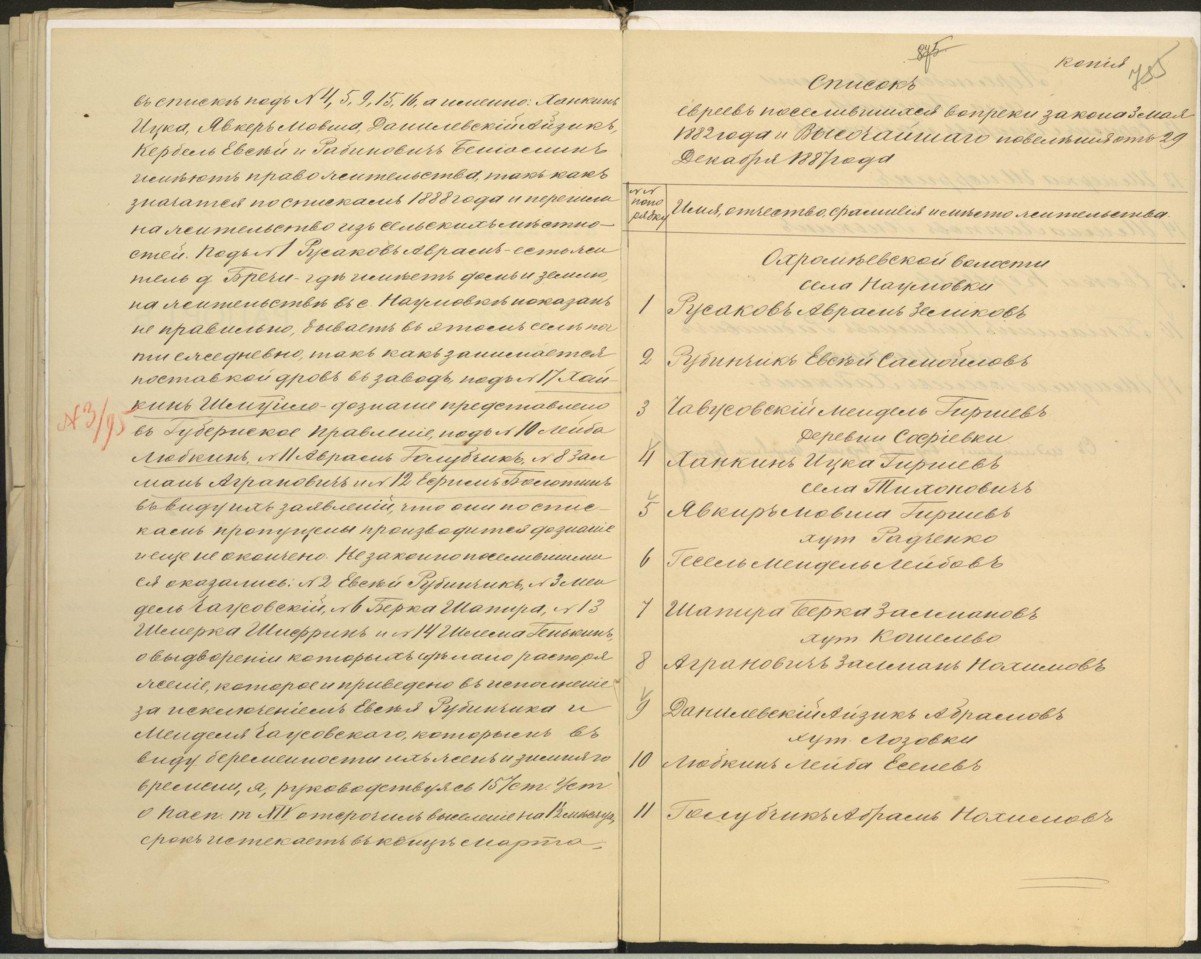 въ спискѣ подъ №4, 5, 9, 15, 16, а именно: Ханкинъ
Ицка, Явкеръ Мовша, Данилевскій Айзикъ,
Кербель Евсѣй и Рабиновичъ Беніаминъ
имѣютъ право жительства, такъ какъ
значатся по спискамъ 1888 года и перешли
на жительство изъ сельскихъ мѣстно-
стей. Подъ №1 Русаковъ Аврамъ – есть жи
тель д. Бречи – гдѣ имѣетъ домъ и землю,
на жительствѣ въ с. Наумовкѣ показанъ
не правильно, бываетъ въ этомъ селѣ поч
ти ежедневно, такъ какъ занимается
поставкой дровъ въ заводъ, подъ №17 Хай-
кинъ Шмуйло – дознаніе представлено
№3/95
въ Губернское Правленіе, подъ №10 Лейба
Любкинъ, №11 Аврамъ Голубчикъ, №8 Зал
манъ Аграновичъ и №12 Ефримъ Болотинъ
въ виду ихъ заявленій, что они по спис-
камъ пропущены производится дознаніе
и еще не окончено. Незаконно поселившими
ся оказались: №2 Евсѣй Рубинчикъ, №3 Мен
дель Чаусовскій, №6 Берка Шапира, №13
Шмерка Шифринъ и №14 Шлема Генькинъ,
о выдвореніи которыхъ сдѣлано распоря
женіе, которое и приведено въ исполненіе
за исключеніемъ Евсѣя Рубинчика и
Менделя Чаусовскаго, которымъ въ
виду беременности ихъ женъ и зимняго
времени, я, руководствуясь 157 ст. Уст
о Пасп. т XIV отсрочилъ выселеніе на 1½ мѣсяца,
срокъ истекаетъ въ концѣ марта.
875
копія
785
Списокъ
евреевъ поселившихся вопреки закона 3 мая
1882 года и Высочайшаго повелѣнія отъ 29
Декабря 1887 года
№№ по по рядку
Имя, отчество, фамилія и мѣсто жительства.
Охромѣевской волости
села Наумовки
1 Русаковъ Аврамъ Зеликовъ
2 Рубинчикъ Евсѣй Самойловъ
3 Чавусовскій Мендель Гиршевъ
деревни Софіевки
4 Ханкинъ Ицка Гиршевъ
села Тихоновичъ
5 Явкиръ Мовша Гиршевъ
хут Радченко
6 Гесель Мендель Лейбовъ
7 Шапира Берка Залмановъ
хут Кошельво
8 Аграновичъ Залманъ Нохимовъ
9 Данилевскій Айзикъ Абрамовъ
хут. Лозовки
10 Любкинъ Лейба Еселевъ
11 Голубчикъ Абрамъ Нохимовъ